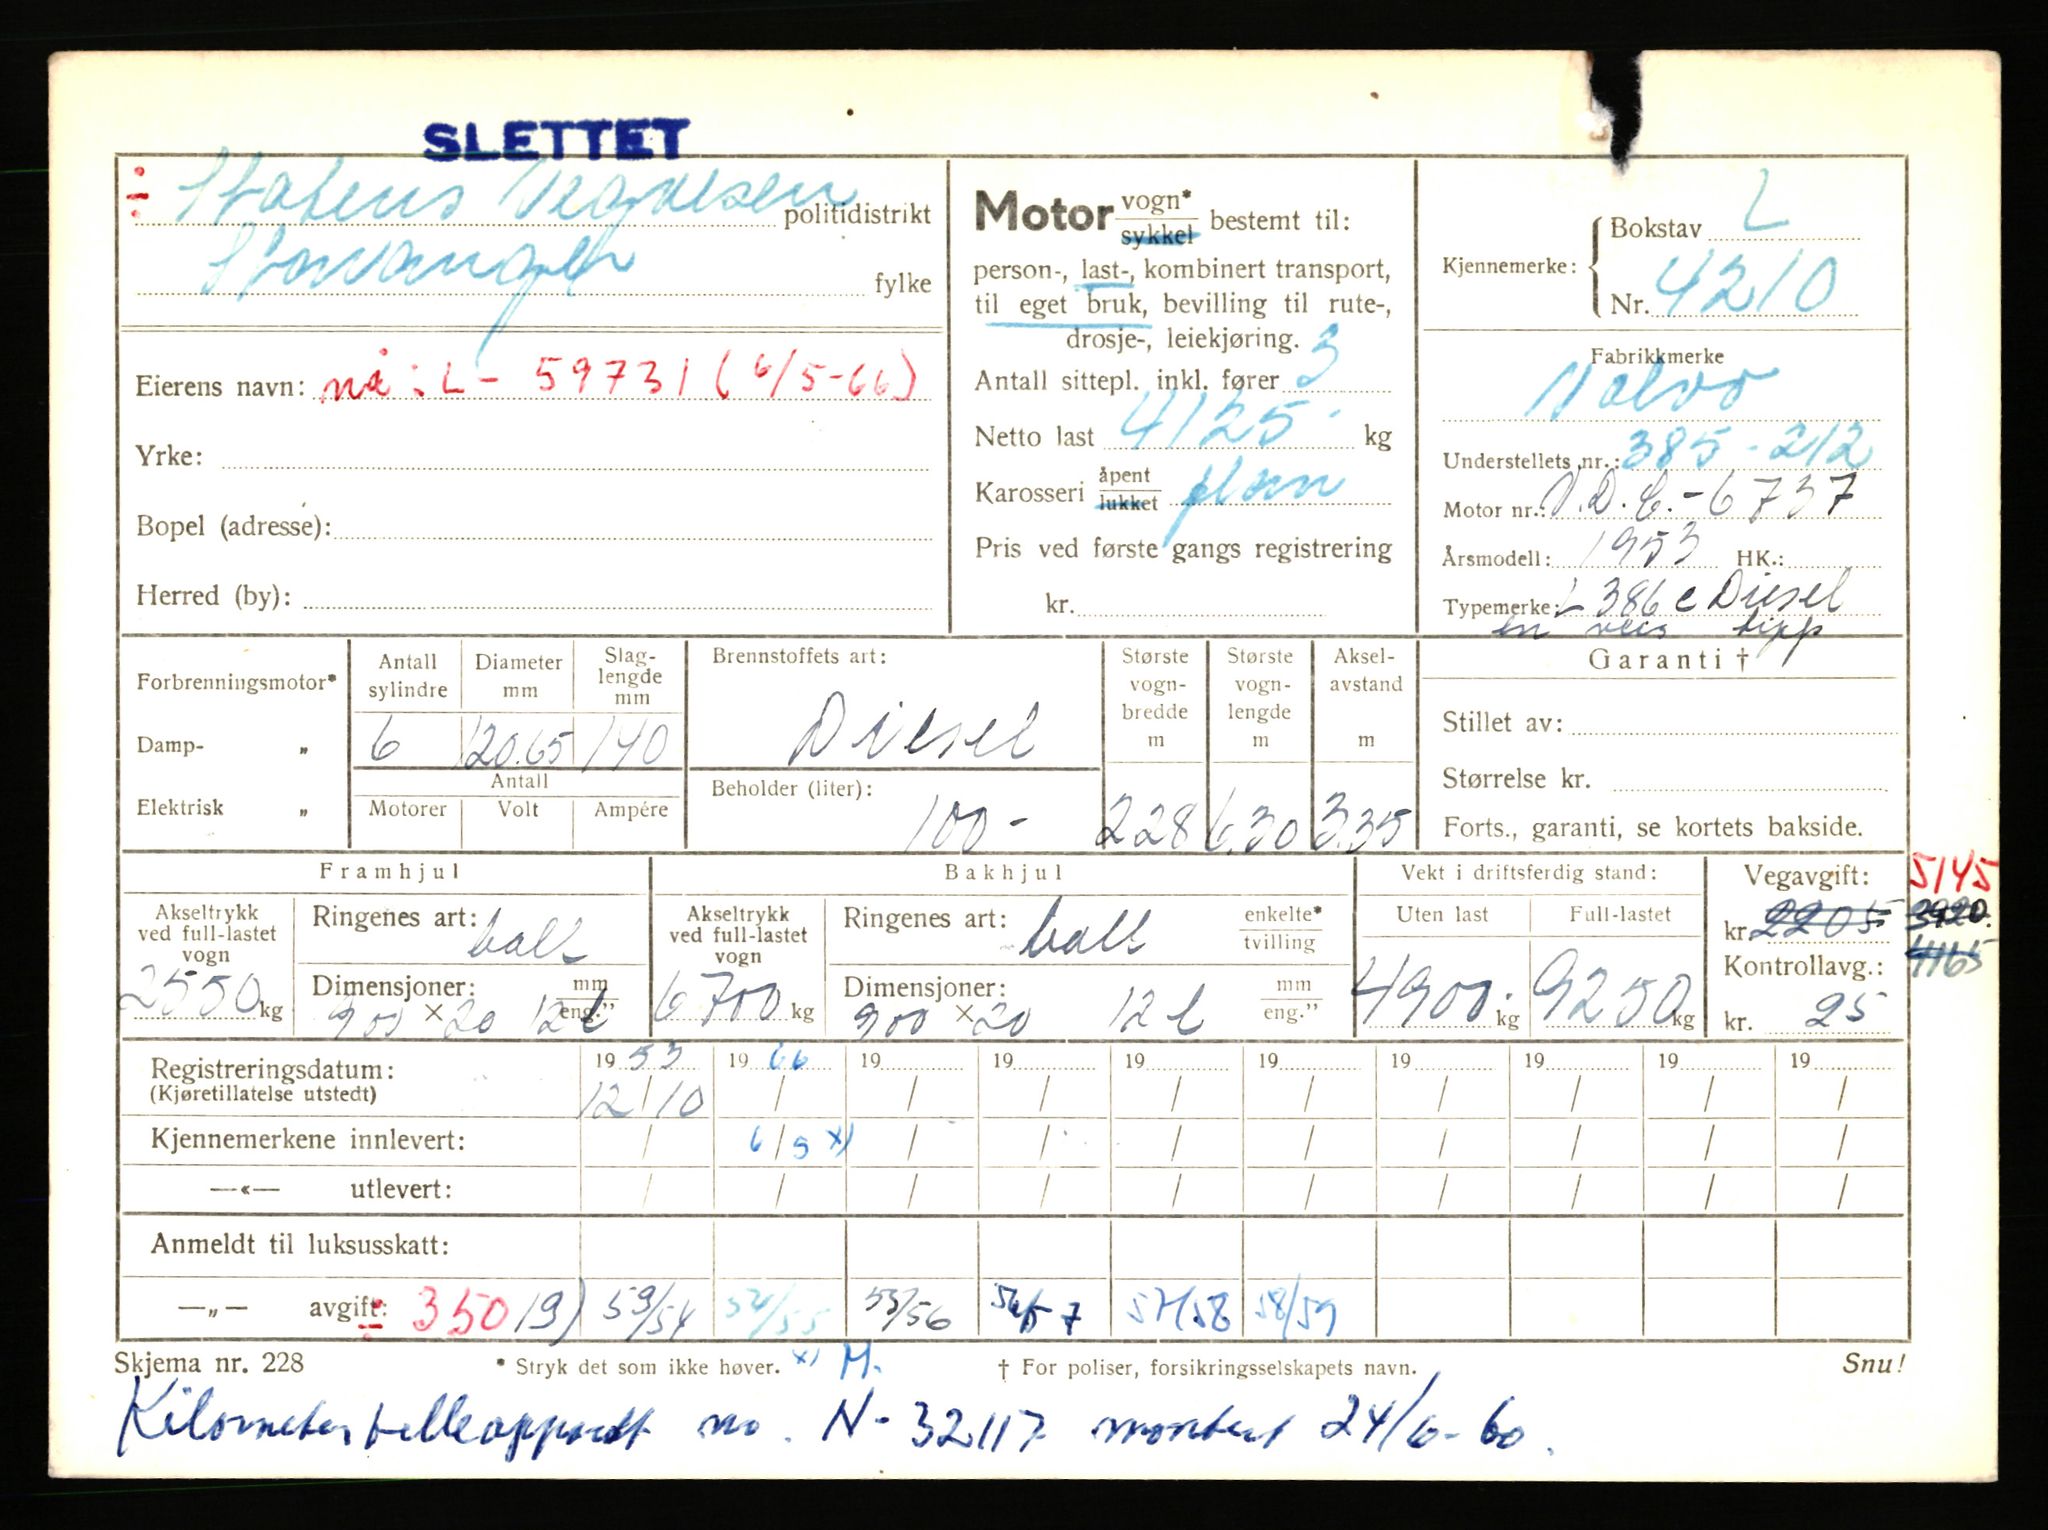 SLETTET
÷ Statens Vegvesen politidistrikt
Stavanger fylke
Eierens navn: nå: L - 59731 (6/5-66)
Yrke:
Bopel (adresse):
Herred (by):
Motor vogn* / sykkel bestemt til:
person-, last-, kombinert transport,
til eget bruk, bevilling til rute-,
drosje-, leiekjøring.
Antall sittepl. inkl. fører 3
Netto last 4125- kg
Karosseri åpent / lukket plan
Pris ved første gangs registrering
kr.
Kjennemerke: Bokstav L
Nr. 4210
Fabrikkmerke
Volvo
Understellets nr.: 385-212
Motor nr.: V.D.C.-6737
Årsmodell: 1953 HK.:
Typemerke: L 386 c Diesel
en veis tipp
Forbrenningsmotor*
Damp- „
Elektrisk „
Antall sylindre Diameter mm Slag-lengde mm
6 120.65 140
Antall
Motorer Volt Ampére
Brennstoffets art:
Diesel
Beholder (liter):
100-
Største vogn-bredde m 228
Største vogn-lengde m 6,30
Aksel-avstand m 3.35
Garanti †
Stillet av:
Størrelse kr.
Forts., garanti, se kortets bakside.
Framhjul
Akseltrykk ved full-lastet vogn
2550 kg
Ringenes art: ball
Dimensjoner: mm / eng."
900 × 20 12 l
Bakhjul
Akseltrykk ved full-lastet vogn
6700 kg
Ringenes art: ball enkelte* / tvilling
Dimensjoner: mm / eng."
900 × 20 12 l
Vekt i driftsferdig stand:
Uten last Full-lastet
4900- kg 9250 kg
Vegavgift: 5145
kr. 2205 3920.
4165
Kontrollavg.:
kr. 25
Registreringsdatum: 1953 1966 19 19 19 19 19 19 19 19
(Kjøretillatelse utstedt) 12/10 / / / / / / / / /
Kjennemerkene innlevert: / 6/5 x) / / / / / / / /
—«— utlevert: / / / / / / / / / /
Anmeldt til luksusskatt:
—„— avgift: ÷ 350 19) 53/54 54/55 55/56 56/57 57/58 58/59
Skjema nr. 228 * Stryk det som ikke høver. x) H. † For poliser, forsikringsselskapets navn. Snu!
Kilometertelleapparat no. N-32117 montert 24/6-60.